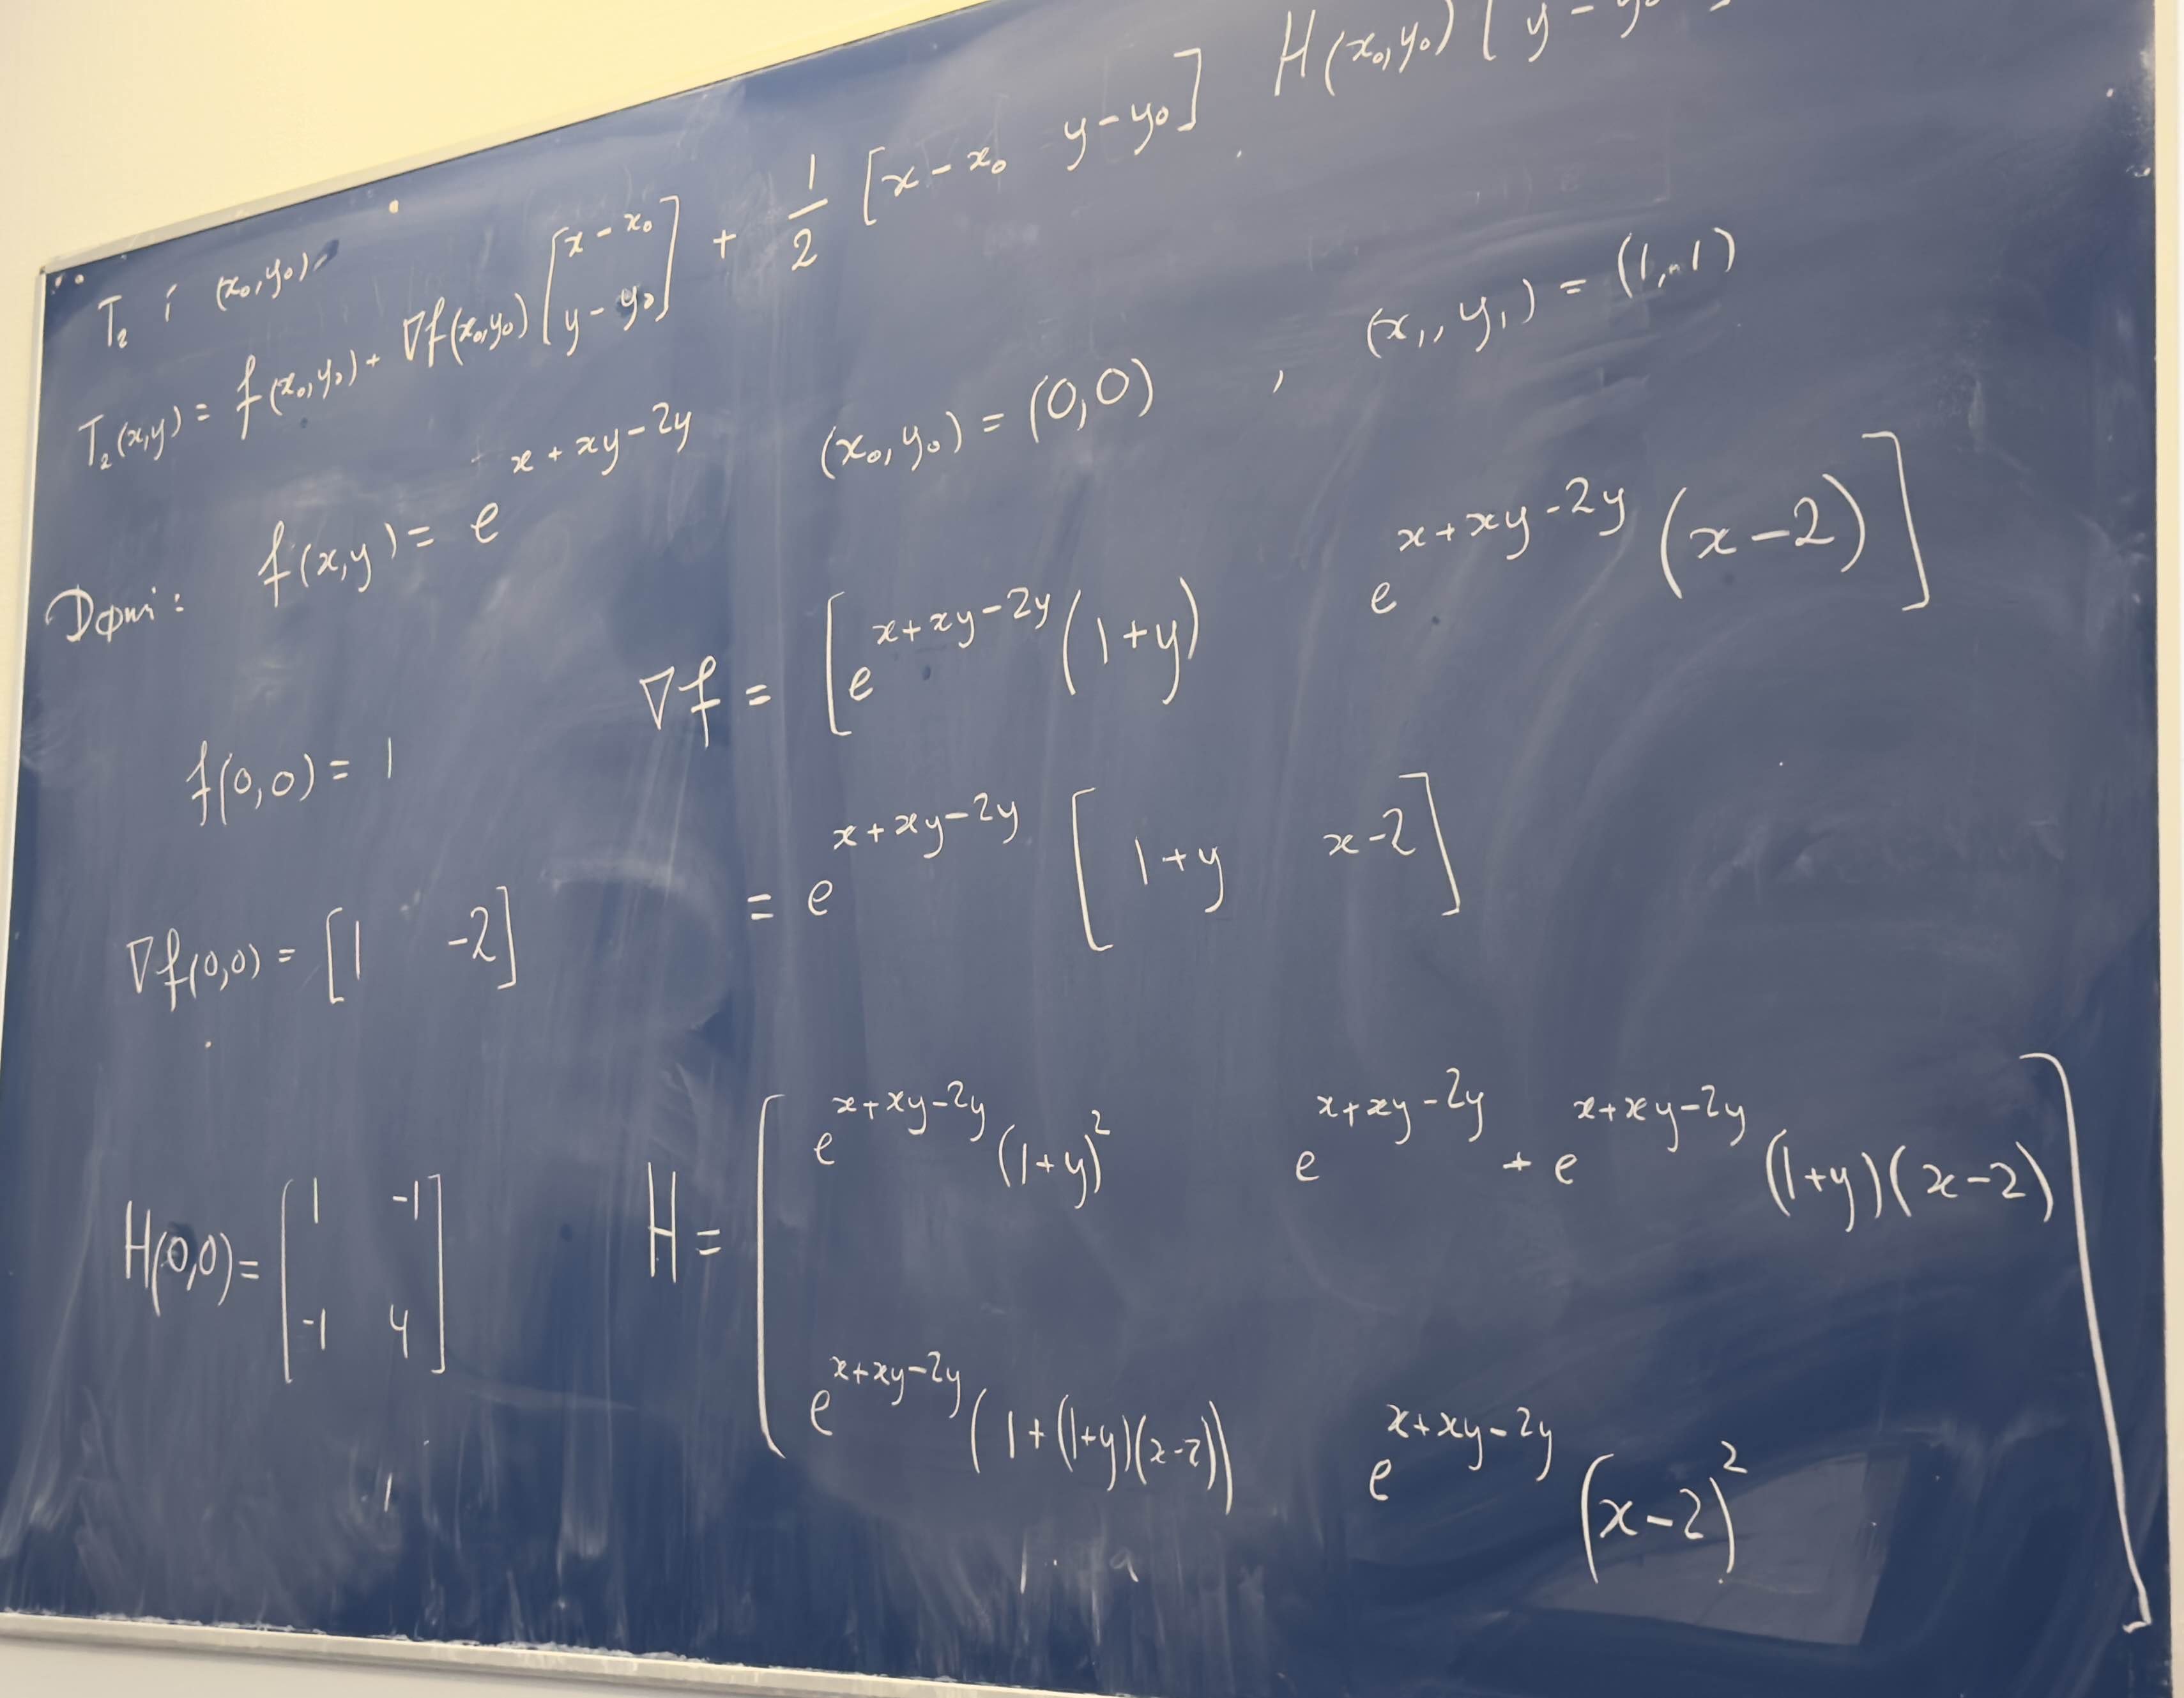 T₂ í (x₀,y₀)
T₂(x,y) = f(x₀,y₀) + ∇f(x₀,y₀) [x-x₀ ; y-y₀] + 1/2 [x-x₀ y-y₀] H(x₀,y₀) [ y-y₀
Dæmi: f(x,y) = e^(x+xy-2y) (x₀,y₀) = (0,0) , (x₁,y₁) = (1,-1)
∇f = [e^(x+xy-2y) (1+y) e^(x+xy-2y) (x-2)]
f(0,0) = 1
= e^(x+xy-2y) [1+y x-2]
∇f(0,0) = [1 -2]
H(0,0) = [1 -1 ; -1 4]
H = [e^(x+xy-2y) (1+y)² e^(x+xy-2y) + e^(x+xy-2y) (1+y)(x-2) ; e^(x+xy-2y) (1+(1+y)(x-2)) e^(x+xy-2y) (x-2)²]